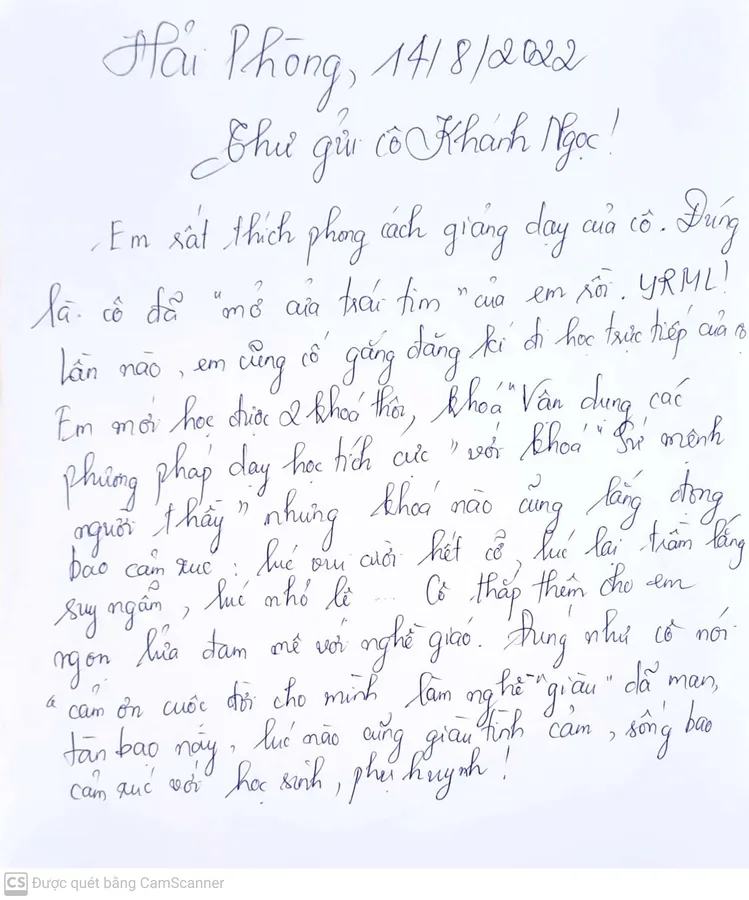 Hải Phòng, 14/8/2022
Thư gửi cô Khánh Ngọc!
Em rất thích phong cách giảng dạy của cô. Đúng
là cô đã "mở cửa trái tim" của em rồi. YRML!
Lần nào, em cũng cố gắng đăng kí đi học trực tiếp của cô
Em mới học được 2 khoá thôi, khoá "Vận dụng các
phương pháp dạy học tích cực" với khoá "Sứ mệnh
người thầy" nhưng khoá nào cũng lắng đọng
bao cảm xúc: lúc vui cười hết cỡ, lúc lại trầm lắng
suy ngẫm, lúc nhỏ lệ ... Cô thắp thêm cho em
ngọn lửa đam mê với nghề giáo. Đúng như cô nói
"cảm ơn cuộc đời cho mình làm nghề "giàu" dã man,
tàn bạo này, lúc nào cũng giàu tình cảm, sống bao
cảm xúc với học sinh, phụ huynh!
CS Được quét bằng CamScanner